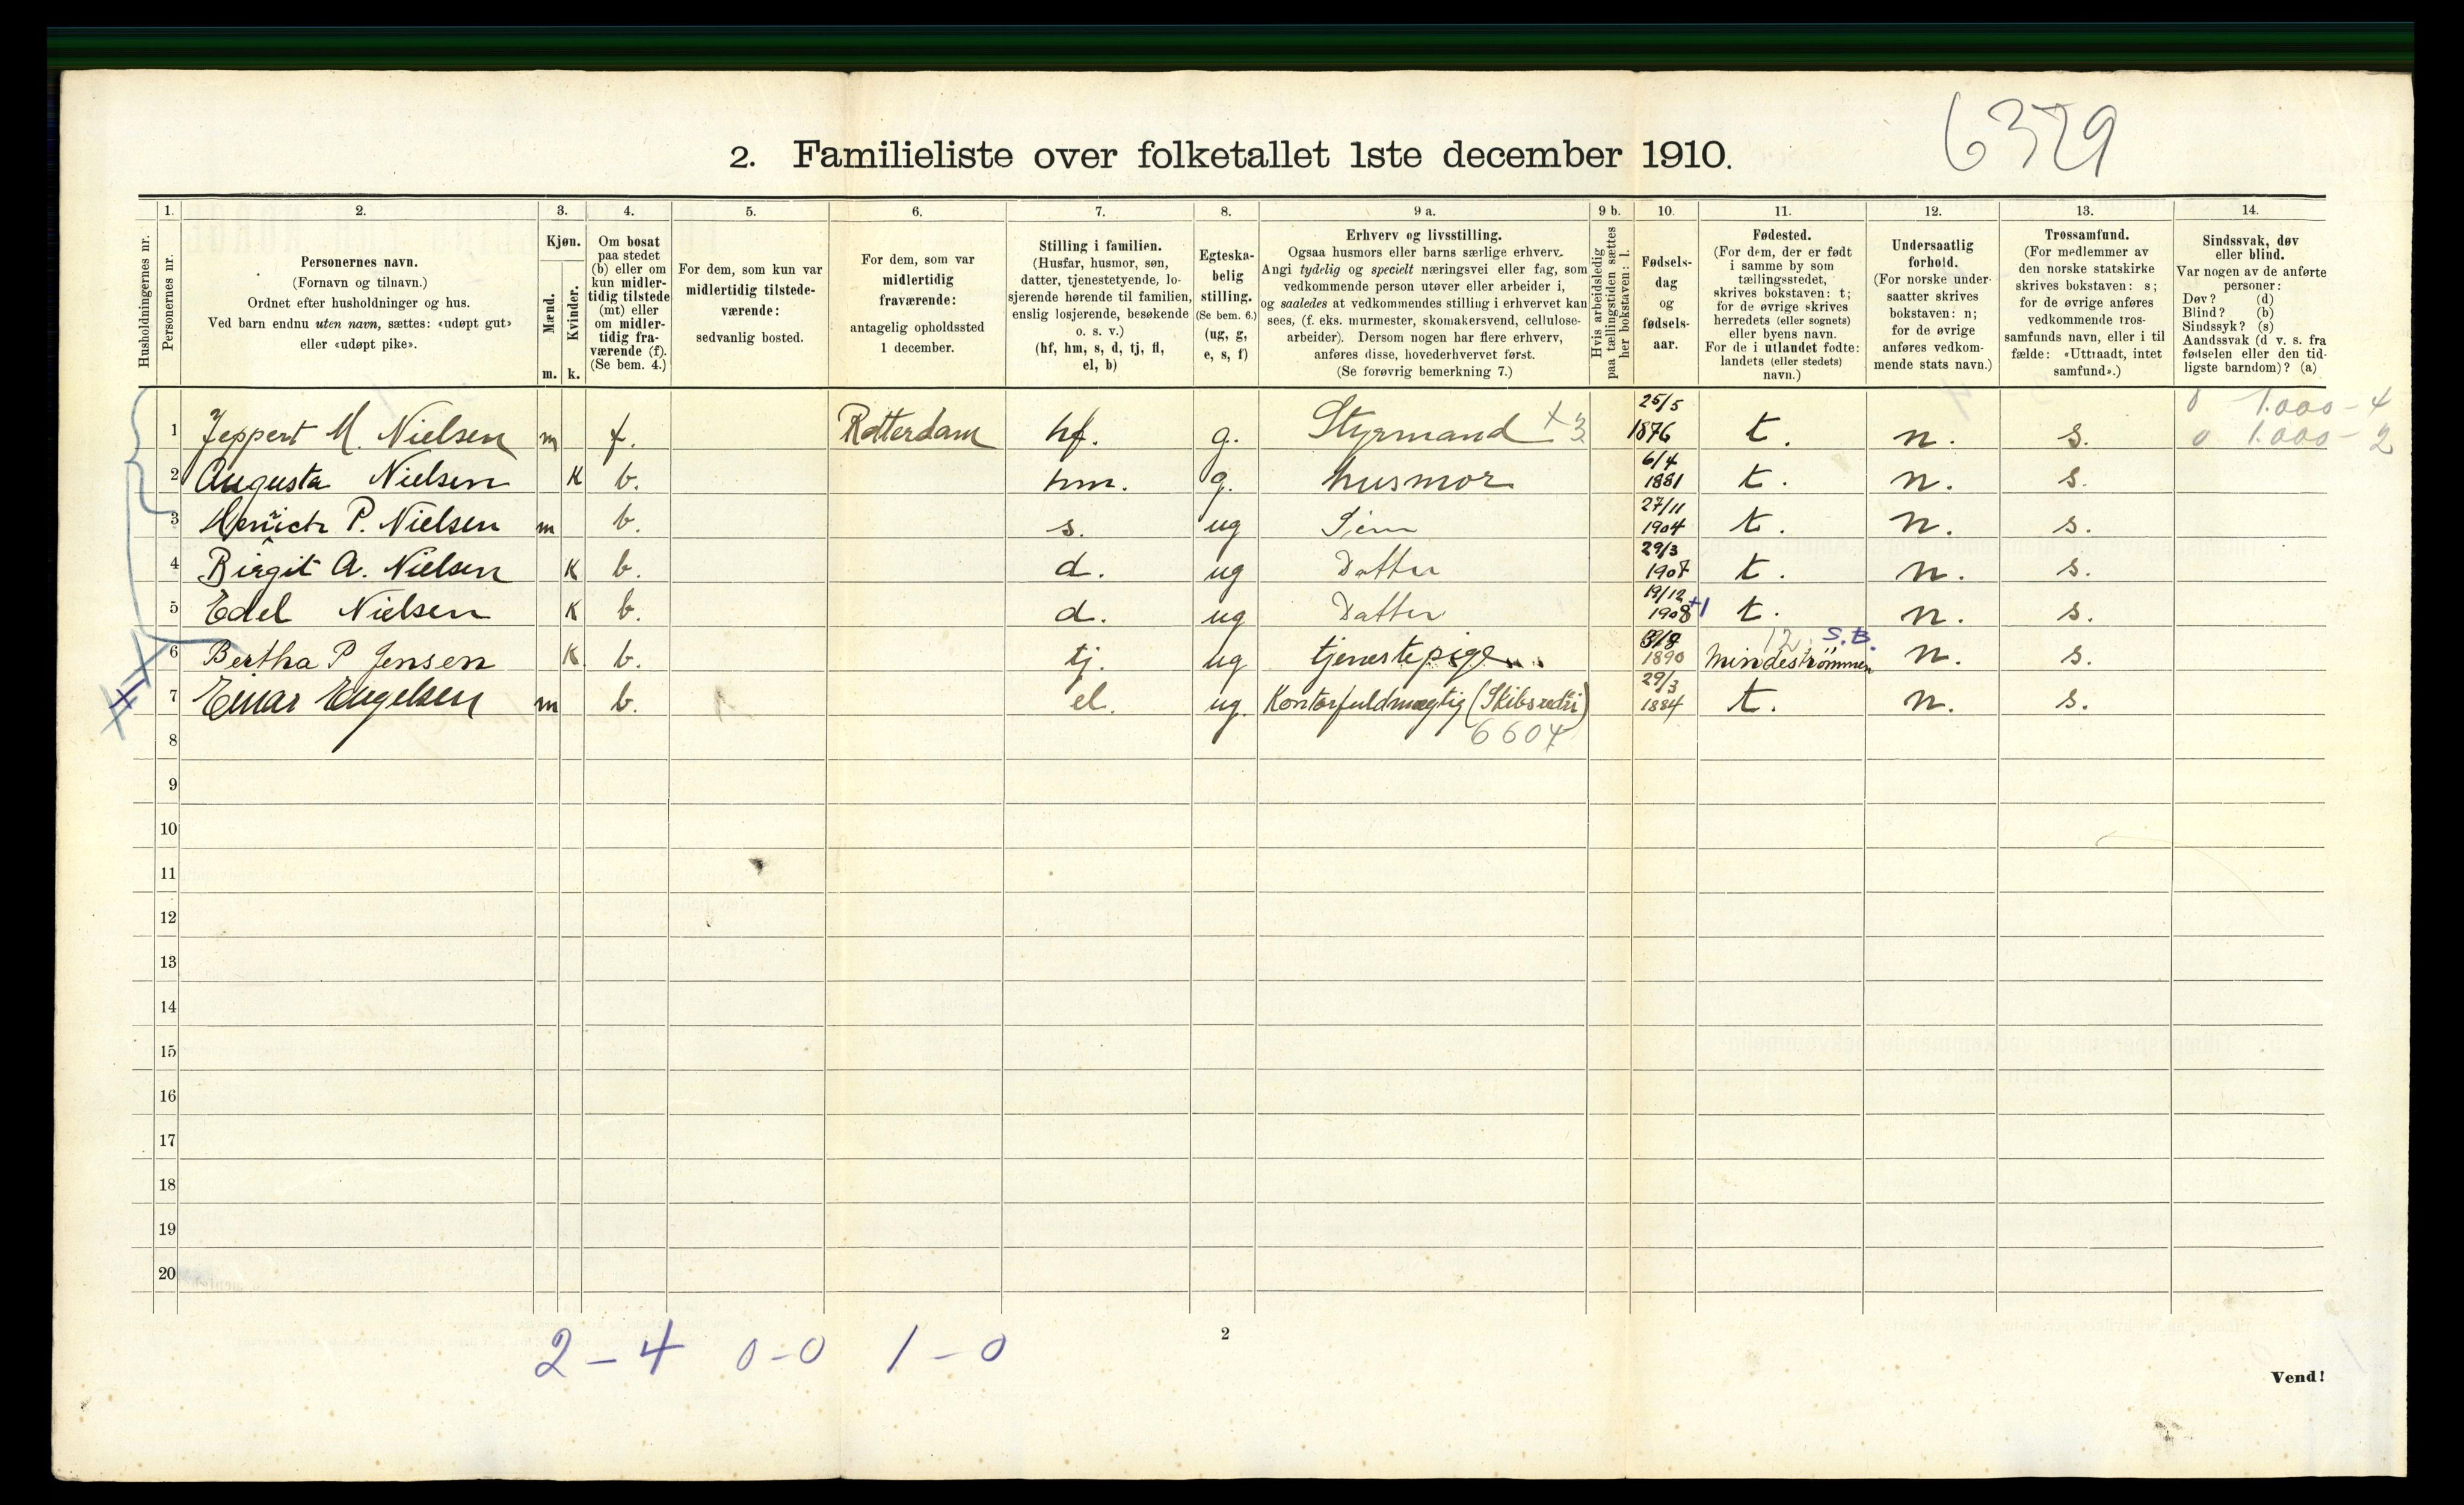 6329
2. Familieliste over folketallet 1ste december 1910.
Husholdningernes nr.
1. Personernes nr.
2. Personernes navn.
(Fornavn og tilnavn.)
Ordnet efter husholdninger og hus.
Ved barn endnu uten navn, sættes: «udøpt gut»
eller «udøpt pike».
3. Kjøn.
Mænd. m.
Kvinder. k.
4. Om bosat
paa stedet
(b) eller om
kun midler-
tidig tilstede
(mt) eller
om midler-
tidig fra-
værende (f).
(Se bem. 4.)
5. For dem, som kun var
midlertidig tilstede-
værende:
sedvanlig bosted.
6. For dem, som var
midlertidig
fraværende:
antagelig opholdssted
1 december.
7. Stilling i familien.
(Husfar, husmor, søn,
datter, tjenestetyende, lo-
sjerende hørende til familien,
enslig losjerende, besøkende
o. s. v.)
(hf, hm, s, d, tj, fl,
el, b)
8. Egteska-
belig
stilling.
(Se bem. 6.)
(ug, g,
e, s, f)
9 a. Erhverv og livsstilling.
Ogsaa husmors eller barns særlige erhverv.
Angi tydelig og specielt næringsvei eller fag, som
vedkommende person utøver eller arbeider i,
og saaledes at vedkommendes stilling i erhvervet kan
sees, (f. eks. murmester, skomakersvend, cellulose-
arbeider). Dersom nogen har flere erhverv,
anføres disse, hovederhvervet først.
(Se forøvrig bemerkning 7.)
9 b. Hvis arbeidsledig
paa tællingstiden sættes
her bokstaven: l.
10. Fødsels-
dag
og
fødsels-
aar.
11. Fødested.
(For dem, der er født
i samme by som
tællingsstedet,
skrives bokstaven: t;
for de øvrige skrives
herredets (eller sognets)
eller byens navn.
For de i utlandet fødte:
landets (eller stedets)
navn.)
12. Undersaatlig
forhold.
(For norske under-
saatter skrives
bokstaven: n;
for de øvrige
anføres vedkom-
mende stats navn.)
13. Trossamfund.
(For medlemmer av
den norske statskirke
skrives bokstaven: s;
for de øvrige anføres
vedkommende tros-
samfunds navn, eller i til
fælde: «Uttraadt, intet
samfund».)
14. Sindssvak, døv
eller blind.
Var nogen av de anførte
personer:
Døv? (d)
Blind? (b)
Sindssyk? (s)
Aandssvak (d. v. s. fra
fødselen eller den tid-
ligste barndom)? (a)
0 1.000 - 4
1 Jeppert M. Nielsen m f. Rotterdam hf. g. Styrmand x 3 25/5 1876 t. n. s. 0 1.000 - 2
2 Augusta Nielsen K b. hm. g. husmor 6/4 1881 t. n. s.
3 Henrich P. Nielsen m b. s. ug Søn 27/11 1904 t. n. s.
4 Birgit A. Nielsen K b. d. ug Datter 29/3 1907 t. n. s.
5 Edel Nielsen K b. d. ug Datter 19/12 1908 +1 t. n. s.
12 S.B.
6 Bertha P Jensen K b. tj. ug tjenestepige 1890 Mindeströmmen n. s.
7 Einar Engelsen m b. el. ug. Kontorfuldmægtig (Skibsrederi) 29/3 1884 t. n. s.
6604
8
9
10
11
12
13
14
15
16
17
18
19
20
2
2 - 4 0 - 0 1 - 0
Vend!